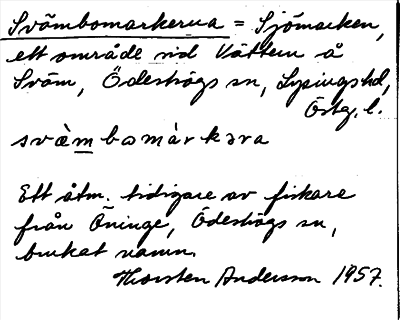 Svämbomarkerna = Sjömarken,
ett område vid Vättern å
Sväm, Ödeshögs sn, Lysings hd,
Östg. l.
svæ̀mbomárkəra
Ett åtm. tidigare av fiskare
från Öninge, Ödeshögs sn,
brukat namn.
Thorsten Andersson 1957.